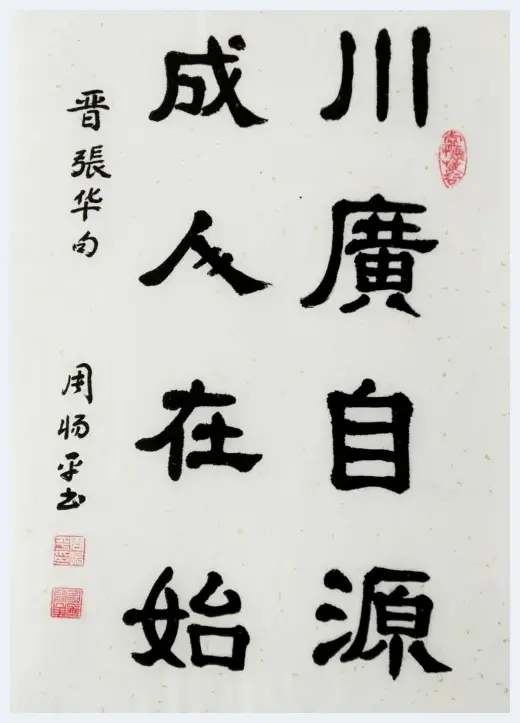 川廣自源
成人在始
晋張华句
周惕平书